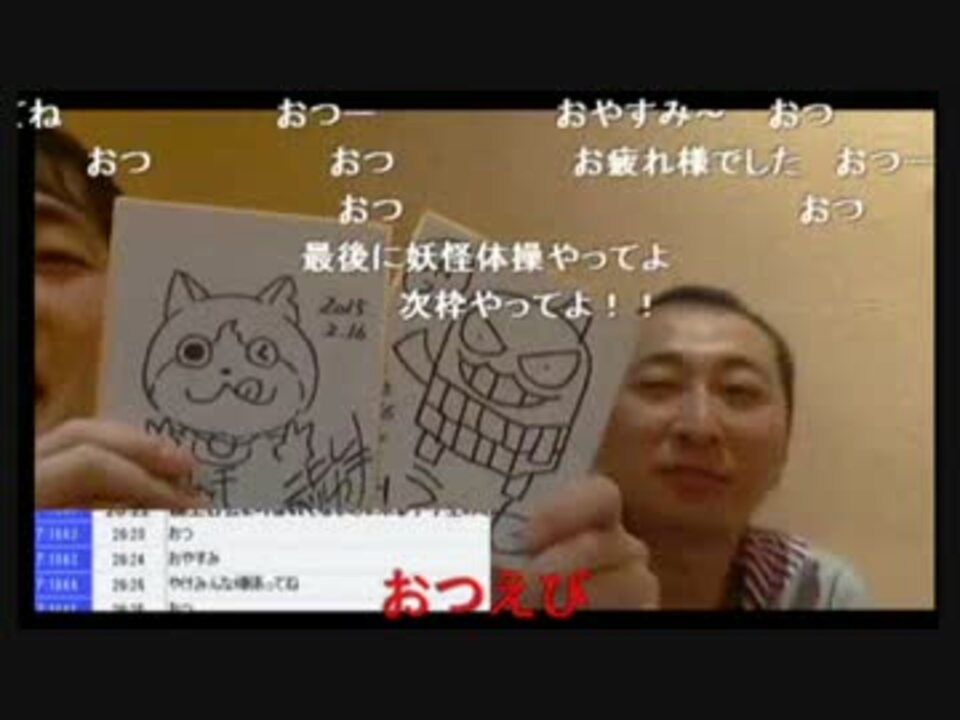 てね おつー おやすみ～ おつ
おつ おつ お疲れ様でした おつー
おつ おつ
最後に妖怪体操やってよ
次枠やってよ！！
2015
2.16
26:23 おつ
26:24 おやすみ
おつ
おつえび